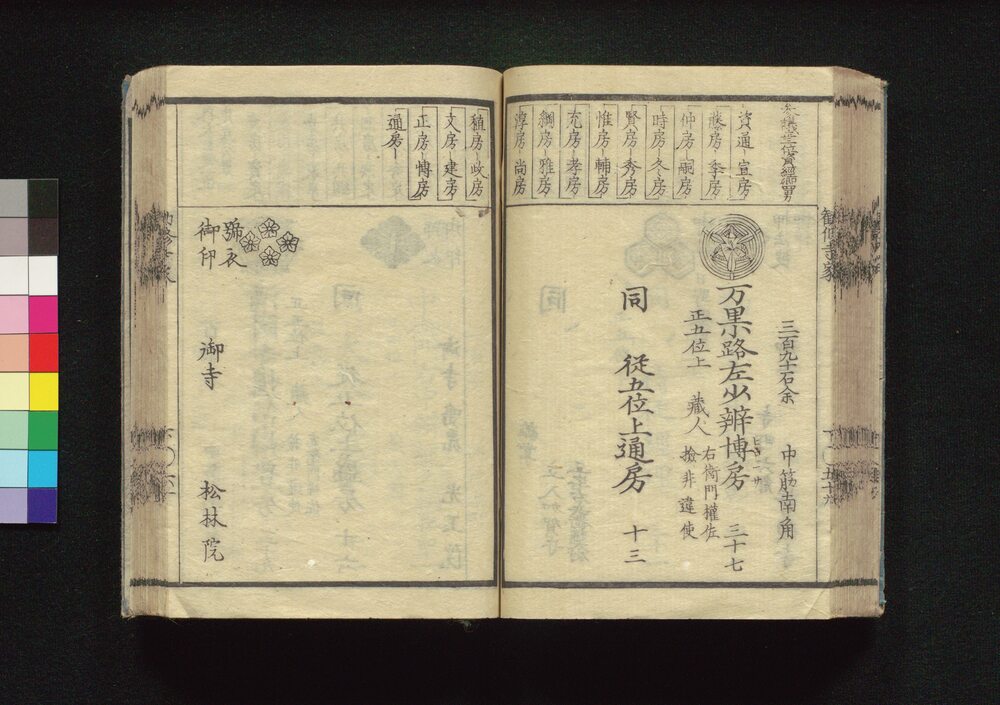 参議正三位資經卿男
資通 宣房
藤房 季房
仲房 嗣房
時房 冬房
賢房 秀房
惟房 輔房
充房 孝房
綱房 雅房
淳房 尚房
三百九十石余 中筋南角
万里路左少辨博房 三十七
正五位上 藏人 右衛門權佐
撿非違使
同 從五位上通房 十三
勸修寺家
五十六
稙房 政房
文房 建房
正房 博房
通房
號衣
御印
御寺 松林院